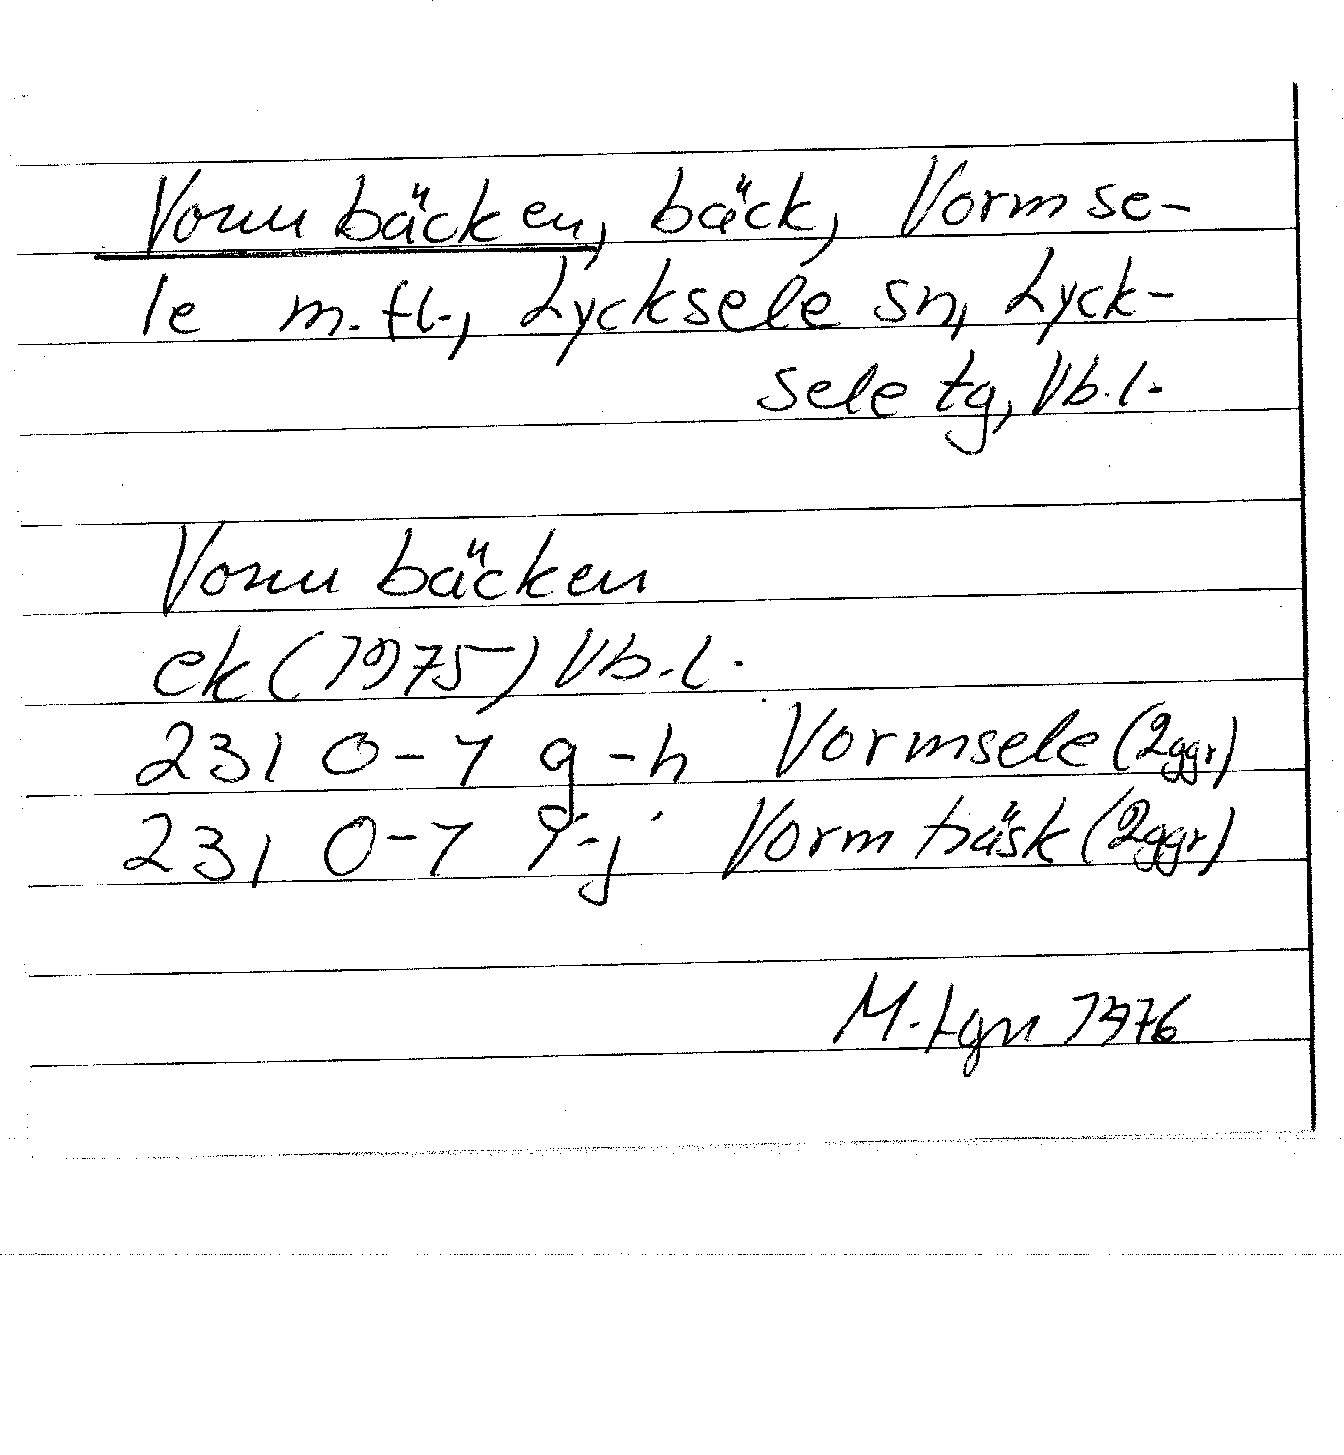 Vormbäcken, bäck, Vormse-
le m.fl., Lycksele sn, Lyck-
sele tg, Vb.l.
Vormbäcken
ek (1975) Vb.l.
231 0-1 g-h Vormsele (2ggr)
231 0-1 i-j Vormträsk (2ggr)
M. Lgn 1976